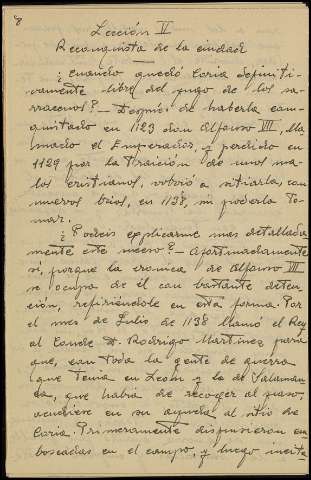 8
Lección V
Reconquista de la ciudad
¿Cuando quedó Coria definiti-
vamente libre del yugo de los sa-
rracenos? — Después de haberla con-
quistado en 1123 don Alfonso VII, lla-
mado el Emperador, y perdido en
1129 por la traición de unos ma-
los cristianos, volvió a sitiarla, con
nuevos bríos, en 1138, sin poderla to-
mar.
¿Podeis explicarme mas detallada-
mente este suceso? — Afortunadamente
sí, porque la cronica de Alfonso VII
se ocupa de él con bastante deten-
ción, refiriéndole en esta forma. Por
el mes de Julio de 1138 llamó el Rey
al Conde D. Rodrigo Martínez para
que, con toda la gente de guerra
que tenia en León y la de Salaman-
ca, que habia de recoger al paso,
acudiese en su ayuda al sitio de
Coria. Primeramente dispusieron em-
boscadas en el campo, y luego incita-